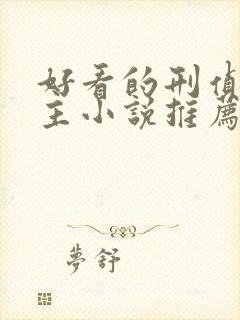 好看的刑偵
主小說推薦
夢舒